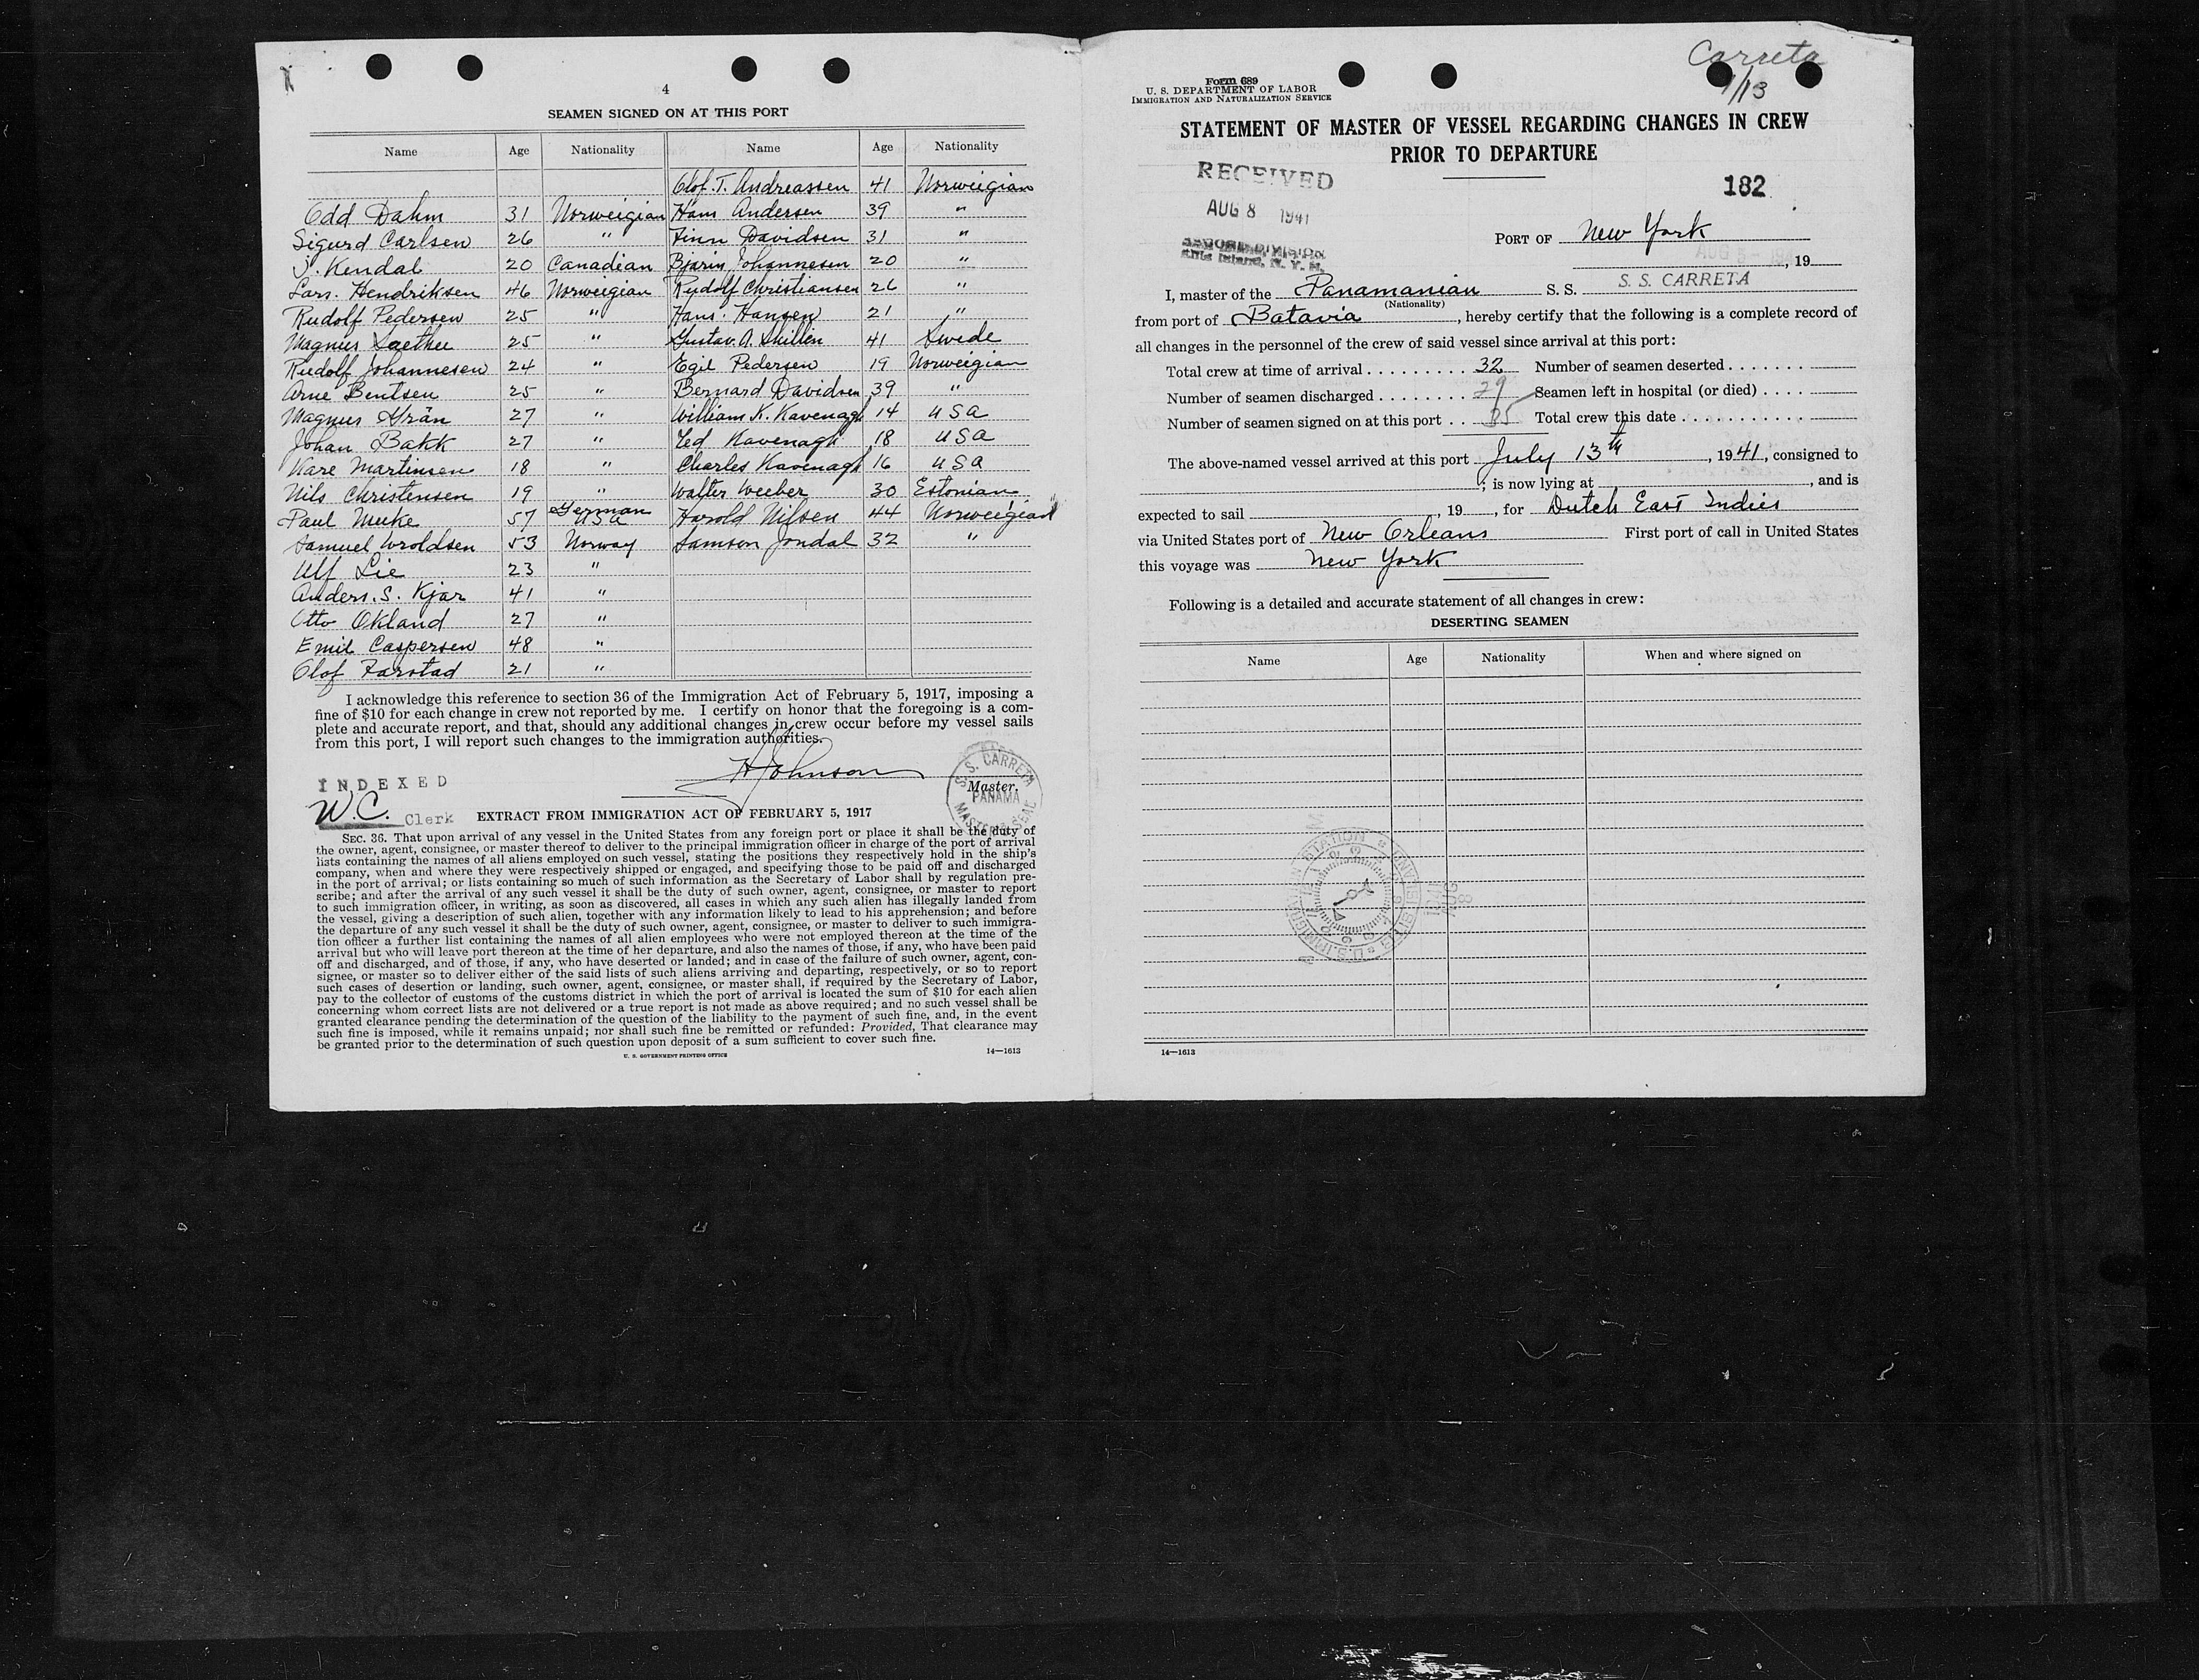 4
SEAMEN SIGNED ON AT THIS PORT
Name Age Nationality Name Age Nationality
Olof. T. Andreassen 41 Norweigian
Odd Dahm 31 Norweigian Hans Andersen 39 "
Sigurd Carlsen 26 " Finn Davidsen 31 "
J. Kendal 20 Canadian Bjarin Johannesen 20 "
Lars. Hendriksen 46 Norweigian Rudolf Christiansen 26 "
Rudolf Pedersen 25 " Hans. Hansen 21 "
Magnus Saethee 25 " Gustav. A. Skillen 41 Swede
Rudolf Johannesen 24 " Egil Pedersen 19 Norweigian
Arne Bentsen 25 " Bernard Davidsen 39 "
Magnus Grän 27 " William K. Kavenagh 14 USA
Johan Bakk 27 " Ted Kavenagh 18 USA
Kare Martinsen 18 " Charles Kavenagh 16 USA
Nils Christensen 19 " Walter Weeber 30 Estonian
Paul Meeke 57 German USA Harold Nilsen 44 Norweigian
Samuel Wroldsen 53 Norway Samson Jondal 32 "
Ulf Lie 23 "
Anders. S. Kjar 41 "
Otto Okland 27 "
Emil Caspersen 48 "
Olof Farstad 21 "
I acknowledge this reference to section 36 of the Immigration Act of February 5, 1917, imposing a
fine of $10 for each change in crew not reported by me. I certify on honor that the foregoing is a com-
plete and accurate report, and that, should any additional changes in crew occur before my vessel sails
from this port, I will report such changes to the immigration authorities.
H Johnson
Master.
S. S. CARRETA
PANAMA
INDEXED
W.C. Clerk
EXTRACT FROM IMMIGRATION ACT OF FEBRUARY 5, 1917
SEC. 36. That upon arrival of any vessel in the United States from any foreign port or place it shall be the duty of
the owner, agent, consignee, or master thereof to deliver to the principal immigration officer in charge of the port of arrival
lists containing the names of all aliens employed on such vessel, stating the positions they respectively hold in the ship's
company, when and where they were respectively shipped or engaged, and specifying those to be paid off and discharged
in the port of arrival; or lists containing so much of such information as the Secretary of Labor shall by regulation pre-
scribe; and after the arrival of any such vessel it shall be the duty of such owner, agent, consignee, or master to report
to such immigration officer, in writing, as soon as discovered, all cases in which any such alien has illegally landed from
the vessel, giving a description of such alien, together with any information likely to lead to his apprehension; and before
the departure of any such vessel it shall be the duty of such owner, agent, consignee, or master to deliver to such immigra-
tion officer a further list containing the names of all alien employees who were not employed thereon at the time of the
arrival but who will leave port thereon at the time of her departure, and also the names of those, if any, who have been paid
off and discharged, and of those, if any, who have deserted or landed; and in case of the failure of such owner, agent, con-
signee, or master so to deliver either of the said lists of such aliens arriving and departing, respectively, or so to report
such cases of desertion or landing, such owner, agent, consignee, or master shall, if required by the Secretary of Labor,
pay to the collector of customs of the customs district in which the port of arrival is located the sum of $10 for each alien
concerning whom correct lists are not delivered or a true report is not made as above required; and no such vessel shall be
granted clearance pending the determination of the question of the liability to the payment of such fine, and, in the event
such fine is imposed, while it remains unpaid; nor shall such fine be remitted or refunded: Provided, That clearance may
be granted prior to the determination of such question upon deposit of a sum sufficient to cover such fine.
U. S. GOVERNMENT PRINTING OFFICE 14—1613
Carreta
1/13
Form 689
U. S. DEPARTMENT OF LABOR
IMMIGRATION AND NATURALIZATION SERVICE
STATEMENT OF MASTER OF VESSEL REGARDING CHANGES IN CREW
PRIOR TO DEPARTURE
RECEIVED
182
AUG 8 1941
Ellis Island, N. Y. H.
PORT OF New York
, 19
I, master of the Panamanian S. S. S. S. CARRETA
(Nationality)
from port of Batavia, hereby certify that the following is a complete record of
all changes in the personnel of the crew of said vessel since arrival at this port:
Total crew at time of arrival 32 Number of seamen deserted
Number of seamen discharged 29 Seamen left in hospital (or died)
Number of seamen signed on at this port 35 Total crew this date
The above-named vessel arrived at this port July 13th, 1941, consigned to
; is now lying at , and is
expected to sail , 19 , for Dutch East Indies
via United States port of New Orleans First port of call in United States
this voyage was New York
Following is a detailed and accurate statement of all changes in crew:
DESERTING SEAMEN
Name Age Nationality When and where signed on
14—1613